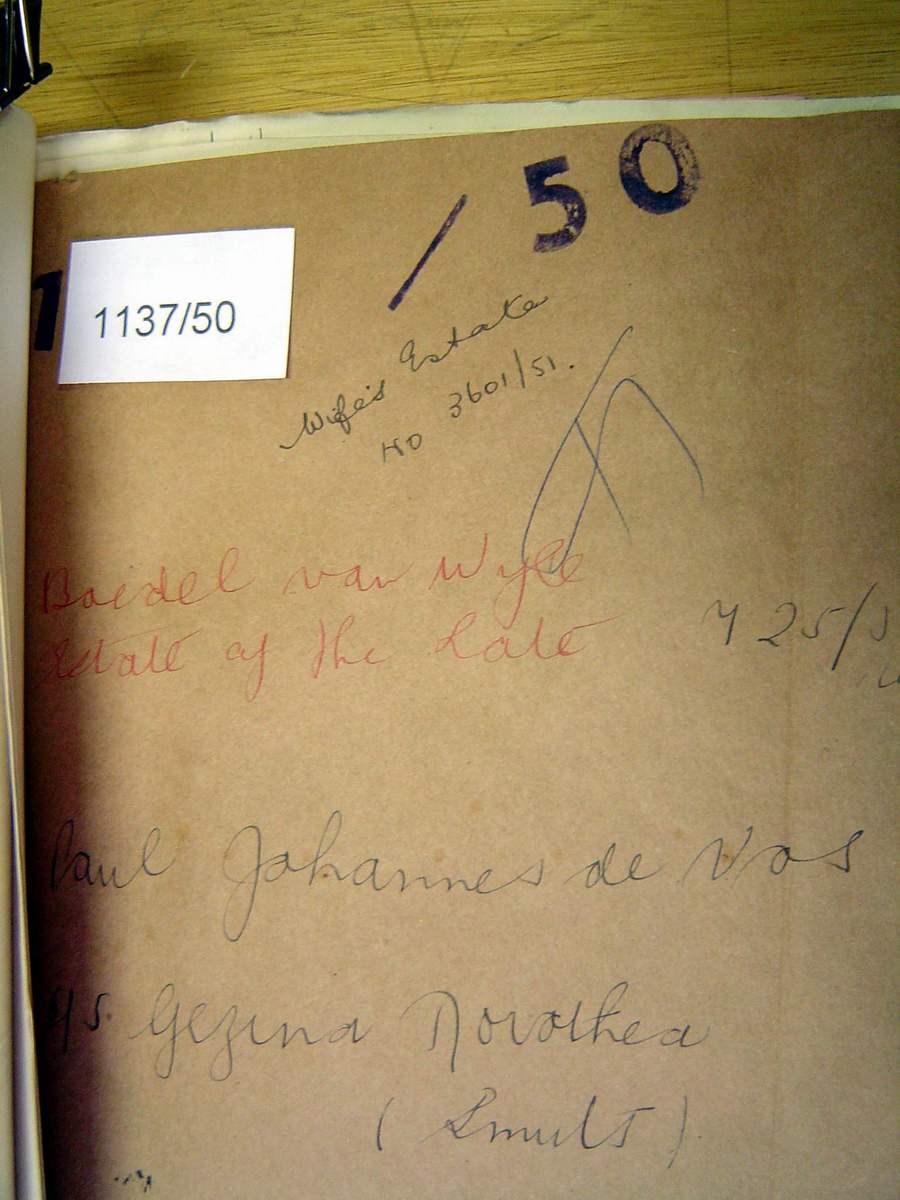 / 50
1137/50
Wife's Estate
No 3601/51.
Boedel van Wyle
Estate of the Late
725/5
Paul Johannes de Vos
Gezina Dorothea
(Smult)